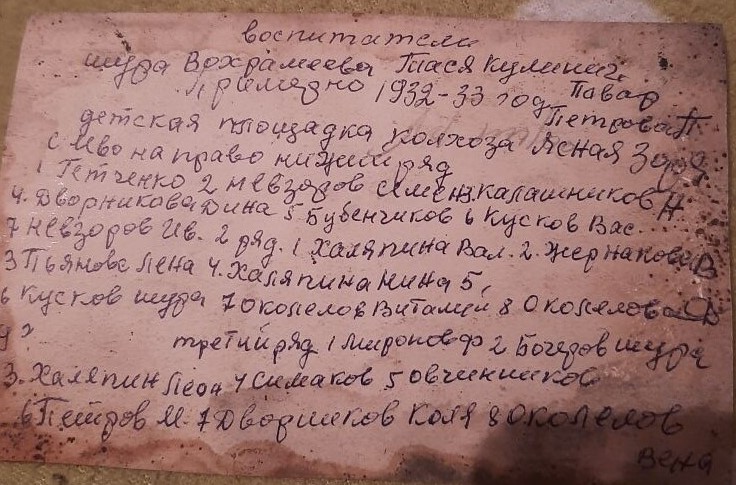 воспитатели
шура Вохрамеева Тася Кулинич
Примерно 1932-33 год Повар
Петрова П
детская площадка колхоза Ясная Заря
с лево на право нижний ряд
1 Гетченко 2 Невзоров Семен 3. Калашников Н.
4. Дворникова Дина 5 Бубенчиков 6 Кусков Вас
7 Невзоров Ив. 2 ряд. 1 Халяпина Вал. 2. Жернакова В
3 Пьянова Лена 4. Халяпина Нина 5,
6 Кусков шура 7 Околелов Виталий 8 Околелова
9 ?
третий ряд 1 Миронов Ф 2 Бочаров шура
3. Халяпин Леон 4 Симаков 5 Овчинников
6 Петров М. 7 Дворников Коля 8 Околелов
Вена